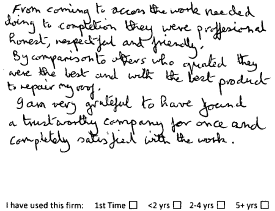 From coming to access the work needed
doing to completion they were proffesional
honest, respectful and friendly.
By comparison to others who quoted they
were the best and with the best product
to repair my roof.
I am very grateful to have found
a trustworthy company for once and
completely satisfied with the work.
I have used this firm: 1st Time <2 yrs 2-4 yrs 5+ yrs